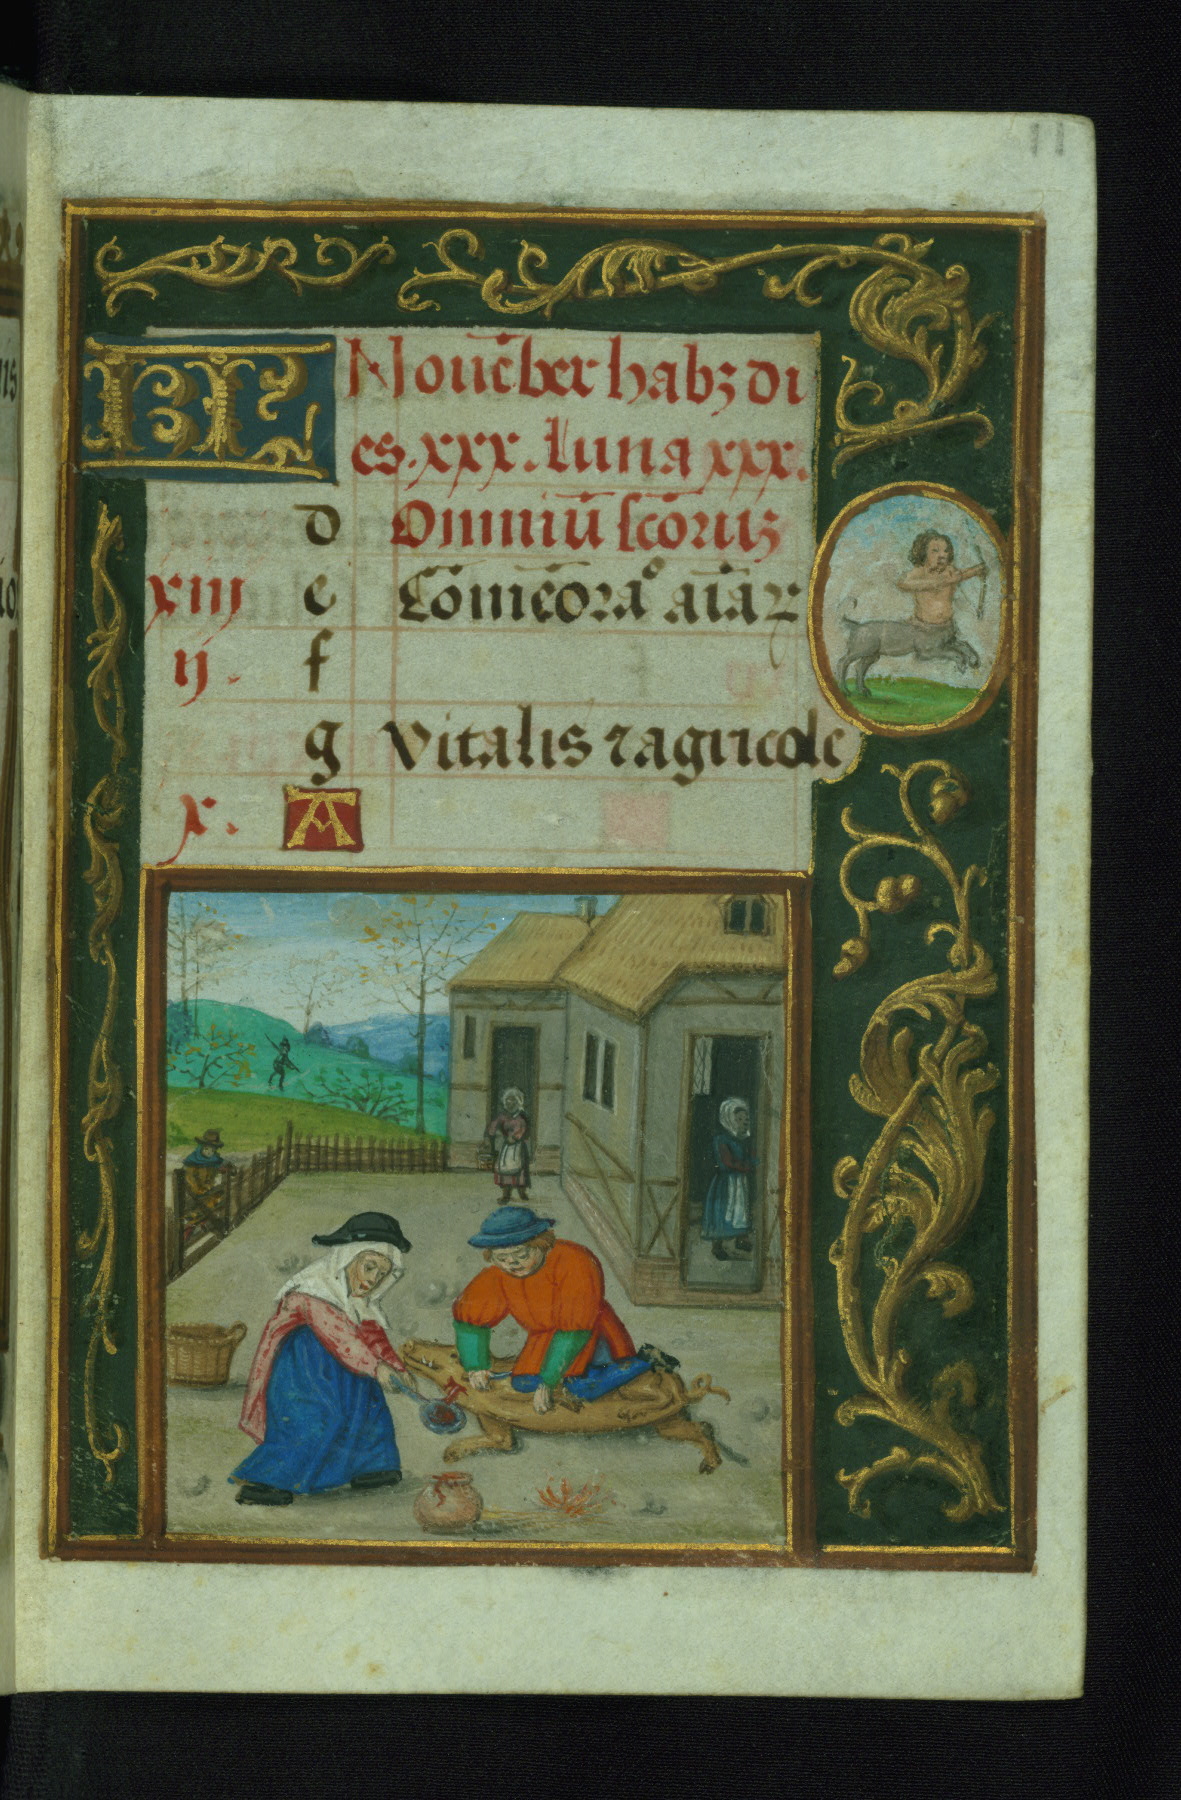 KL Nouēber habꝫ di
es .xxx. Luna xxx.
d Omniū scōruꝫ
xiij e Cōmēoraᵒ aīaꝝ
ij. f
g Vitalis ⁊ agricole
x. A
11